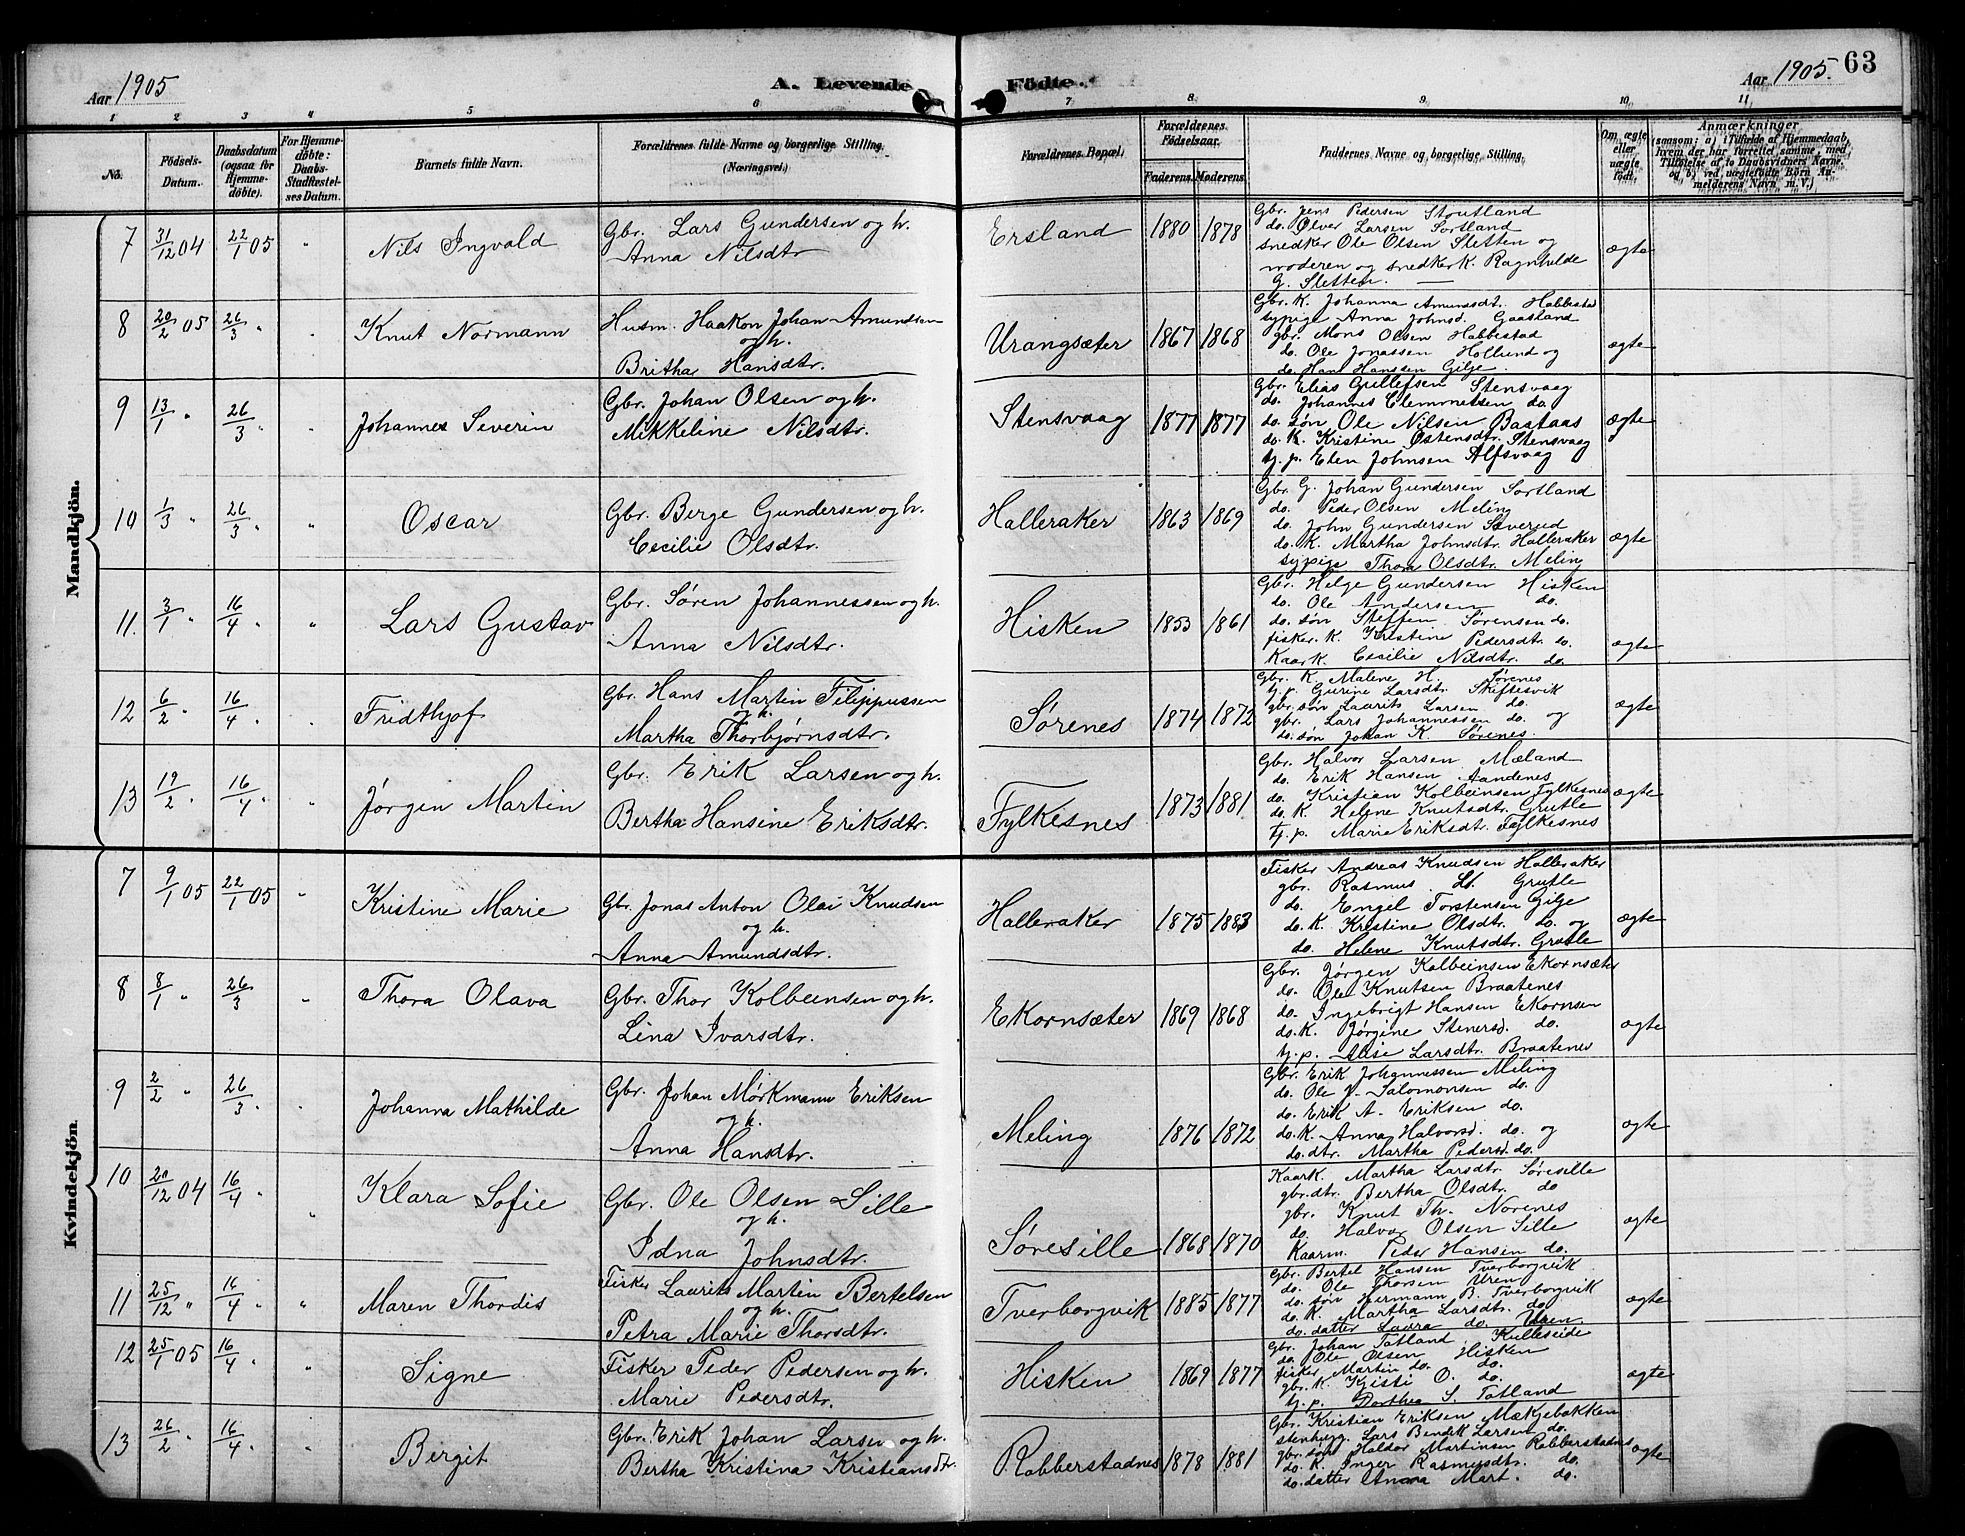 Aar 1905
A. Levende Födte.
Aar 1905.
63
1 2 3 4 5 6 7 8 9 10 11
No.
Födsels-Datum.
Daabsdatum (ogsaa for Hjemme-döbte).
For Hjemme-döbte: Daabs-Stadfæstel-ses Datum.
Barnets fulde Navn.
Forældrenes fulde Navne og borgerlige Stilling. (Næringsvei.)
Forældrenes Bopæl.
Forældrenes Fødselsaar.
Faderens. Moderens.
Faddernes Navne og borgerlige Stilling.
Om ægte eller uægte født.
Anmærkninger
(saasom: a) i Tilfælde af Hjemmedaab, hvem der har forrettet samme, med Tilföielse af to Daabsvidners Navne, og b) ved uægtefødte Börn An-melderens Navn m. V.)
Mandkjön.
7 31/12 04 22/1 05 " Nils Ingvald
Gbr. Lars Gundersen og h.
Anna Nilsdtr
Ersland 1880 1878
Gbr. Jens Pedersen Stoutland
do. Ølver Larsen Sortland
snedker Ole Olsen Sletten og
moderen og snedker k. Ragnhilde
G. Sletten.
ægte
8 20/2 05 26/3 " " Knut Normann
Husm. Haakon Johan Amundsen
og h.
Britha Hansdtr.
Urangsæter 1867 1868
Gbr. K. Johanna Amundsdt. Habbestad
sypige Anna Johnsd. Gaasland
gbr. Mons Olsen Habbestad
do. Ole Jonassen Hollund og
do. Hans Hanssen Gilje.
ægte
9 13/1 " 26/3 " " Johannes Severin
Gbr. Johan Olsen og h.
Mikkeline Nilsdtr.
Stensvaag 1877 1877
Gbr. Elias Gullefsen Stensvaag
do. Johannes Clemmetsen do.
do. søn Ole Nilsen Bastaas
do. K. Kristine Østensdtr. Stensvaag
tj. p. Elen Johnsen Alfsvaag
ægte
10 1/3 " 26/3 " " Oscar
Gbr. Berge Gundersen og h.
Cecilie Olsdtr.
Halleraker 1863 1869
Gbr. G. Johan Gundersen Sortland
do. Peder Olsen Meling
do. John Gundersen Sæverud
do. K. Martha Johnsdtr. Halleraker
sypige Thora Olsdtr. Meling
ægte
11. 3/1 " 16/4 " " Lars Gustav
Gbr. Søren Johannessen og h.
Anna Nilsdtr.
Hisken 1853 1861
Gbr. Helge Gundersen Hisken
do. Ole Andersen do.
do. søn Steffen Sørensen do.
fisker. K. Kristine Pedersdt. do.
Kaark. Cecilie Nilsdtr. do.
ægte
12 6/2 " 16/4 " " Fridthjof
Gbr. Hans Martin Filippussen
og h.
Martha Thorbjørnsdtr.
Sørenes 1874 1872
Gbr. K. Malene H. Sørenes
tj. p. Gurine Larsdtr. Skiftesvik
gbr. søn Laurits Larsen do.
gbr. Lars Johannessen do. og
do. søn Johan K. Sørenes.
ægte
13 19/2 " 16/4 " " Jørgen Martin
Gbr. Erik Larsen og h.
Bertha Hansine Eriksdtr.
Fylkesnes 1873 1881
Gbr. Halvor Larsen Mæland
do. Erik Hansen Aandenes
do. Kristian Kolbeinsen Fylkesnes
do. K. Helene Knutsdtr. Grutle
tj. p. Marie Eriksdtr. Fylkesnes
ægte
Kvindekjön.
7 9/1 05 22/1 05 " Kristine Marie
Gbr. Jonas Anton Olai Knudsen
og h.
Anna Amundsdtr.
Halleraker 1875 1883
Fisker Andreas Knudsen Halleraker
gbr. Rasmus Grutle
do. Engel Torstensen Gilje
do. K. Kristine Olsdtr. do. og
do. Helene Knutsdtr. Grutle
ægte
8 8/1 " 26/3 " Thora Olava
Gbr. Thor Kolbeinsen og h.
Lina Ivarsdtr.
Ekornsæter 1869 1868
Gbr. Jørgen Kolbeinsen Ekornsæter
do. Ole Knutsen Braatenes
do. Ingebrigt Hansen Ekornsen
do. K. Jørgine Stenersd. do.
tj. p. Alise Larsdtr. Braatenes
ægte
9 2/2 " 26/3 " Johanna Mathilde
Gbr. Johan Mørkmann Eriksen
og h.
Anna Hansdtr.
Meling 1876 1872
Gbr. Erik Johannessen Meling
do. Ole J. Salomonsen do.
do. Erik A. Eriksen do.
do. K. Anna Halvorsd. do. og
do. dtr. Martha Pedersd. do.
ægte
10 20/12 04 16/4 " " Klara Sofie
Gbr. Ole Olsen Sille
og h.
Idna Johnsdtr.
Søresille 1868 1870
Kaark. Martha Larsdtr. Søresille
gbr. dtr. Bertha Olsdtr. do
gbr. Knut Th. Norenes
do. Halvor Olsen Sille
Kaarm. Peder Hansen do.
ægte
11 25/12 " 16/4 " " Maren Thordis
Fisker Laurits Martin Bertelsen
og h.
Petra Marie Thorsdtr.
Tverborgvik 1885 1877
Gbr. Bertel Hansen Tverborgvik
do. Ole Thorsen Uren
do. søn Hermann B. Tverborgvik
do. K. Martha Larsdtr. do
do. datter Laura do. Uren.
ægte
12 25/1 05 16/4 " " Signe
Fisker Peder Pedersen og h.
Marie Pedersdtr.
Hisken 1869 1877
Gbr. Johan Totland Kulleseide
do. Ole Olsen Hisken
fisker Martin do. do.
gbr. K. Kristi O. do.
tj. p. Dorthea S. Totland
ægte
13 26/2 " 16/4 " " Birgit
Gbr. Erik Johan Larsen og h.
Bertha Kristina Kristiansdtr.
Robberstadnes 1878 1881
Gbr. Kristian Eriksen Mækjebakken
stenhugg. Lars Bendik Larsen do.
gbr. søn Haldor Martinsen Robberstadnes
do. K. Inger Rasmusdtr. do.
do. datter Anna Mart. do.
ægte